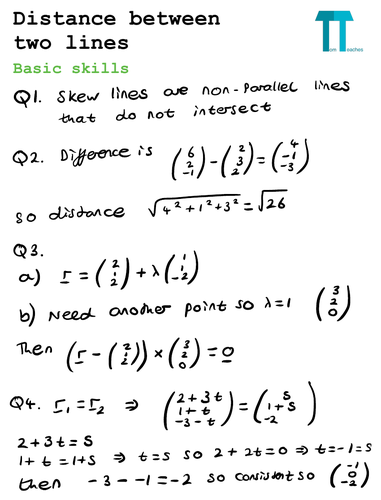 Distance between
two lines
Tom Teaches
Basic skills
Q1. Skew lines are non-parallel lines
that do not intersect
Q2. Difference is (6 2 -1) - (2 3 2) = (4 -1 -3)
so distance √4²+1²+3² = √26
Q3.
a) r = (2 1 2) + λ(1 1 -2)
b) Need another point so λ=1 (3 2 0)
Then (r - (2 1 2)) × (3 2 0) = 0
Q4. r₁ = r₂ ⇒ (2+3t 1+t -3-t) = (s 1+s -2)
2+3t = s
1+t = 1+s ⇒ t=s so 2+2t=0 ⇒ t=-1=s
then -3--1=-2 so consistent so (-1 0 -2)